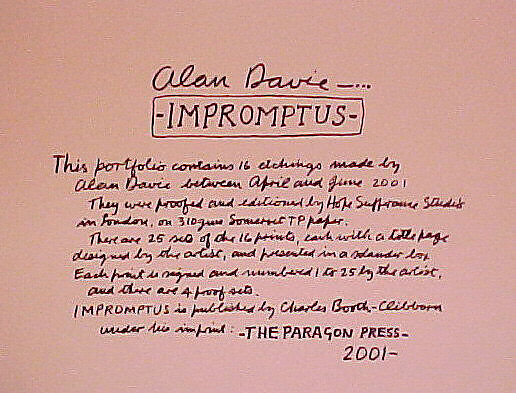 Alan Davie—...
-IMPROMPTUS-
This portfolio contains 16 etchings made by
Alan Davie between April and June 2001
They were proofed and editioned by Hope Suffrance Studio
in London, on 310gm Somerset TP paper.
There are 25 sets of the 16 prints, each with a title page
designed by the artist, and presented in a solander box
Each print is signed and numbered 1 to 25 by the artist,
and there are 4 proof sets.
IMPROMPTUS is published by Charles Booth-Clibborn
under his imprint: -THE PARAGON PRESS-
2001-